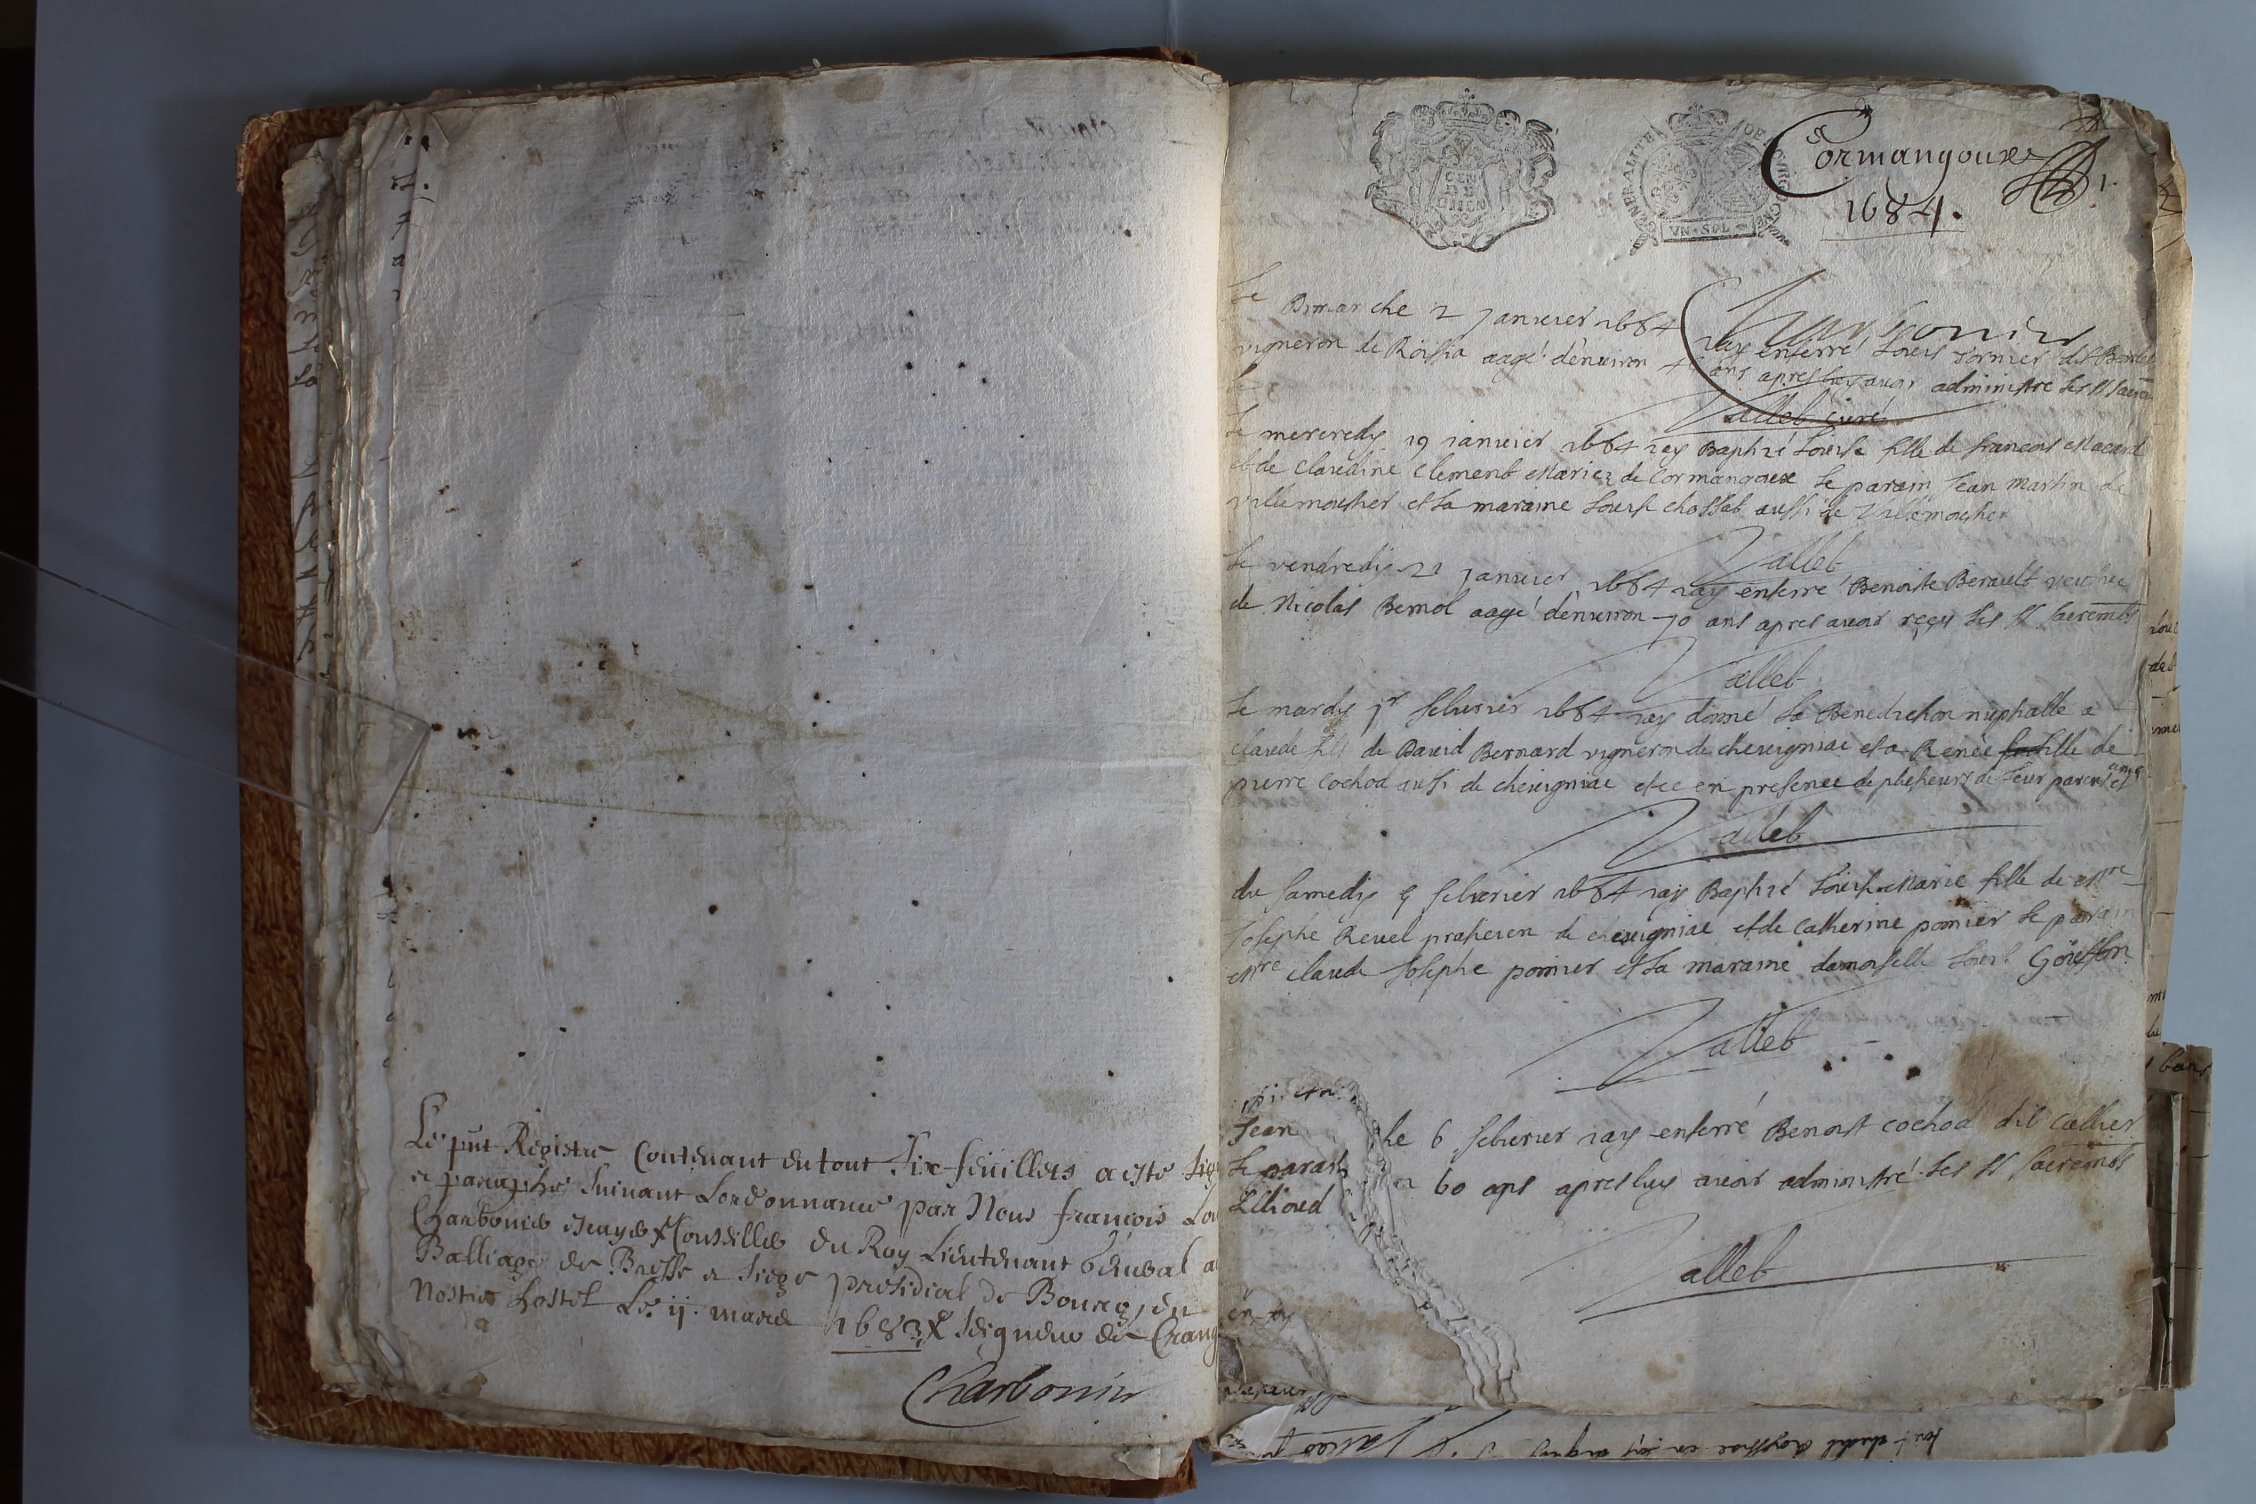 Le pnt Registre Contenant en tout Six feüillets a esté
et paraphé suivant Lordonnance par Nous françois
Charbonier Escuyer Conseiller du Roy Lieutenant General a
Balliage de Bresse et siege presidial de Bourg, en
Nostre hostel Le ij. mars 1683 Seigneur de Crang
Charbonier
GENERALITE DE BOURGOGNE
VN SOL
Cormangoux
1684.
1.
Charbonier
Le Dimarche 2 janvier 1684 iay enterré Louis Pornier dit
vigneron de Roissia aagé denviron ans apres luy avoir administré les SS sacrem
Vallet curé
Le mercredy 19 janvier 1684 iay Baptizé Louise fille de francois Macard
et de Claudine Clement Mariez de Cormangoux le parain Jean Martin de
Villemoutier et la maraine Louise chossat aussi de Villemoutier
Vallet
Le vendredy 21 janvier 1684 iay enterré Benoiste Berault vefue
de Nicolas Bernol aagé denviron 70 ans apres avoir reçeu les SS sacremts
Vallet
Le mardy 1r feburier 1684 iay donné la Benediction nuptialle a
claude fils de David Bernard vigneron de chevigniac et a Renée fille de
pierre cochod aussi de chevigniac et ce en presence de plusieurs de leur parens et amys
Vallet
du samedy 5 feburier 1684 iay Baptizé Louise Marie fille de Mre
Josephe Revel praticien de chevigniac et de Catherine pomier le parain
Mre claude Josephe pomier et la maraine damoiselle Louise
Vallet
Jean le 6 feburier iay enterré Benoist cochod dit
le parain 60 ans apres luy avoir administré les SS sacremts
Vallet